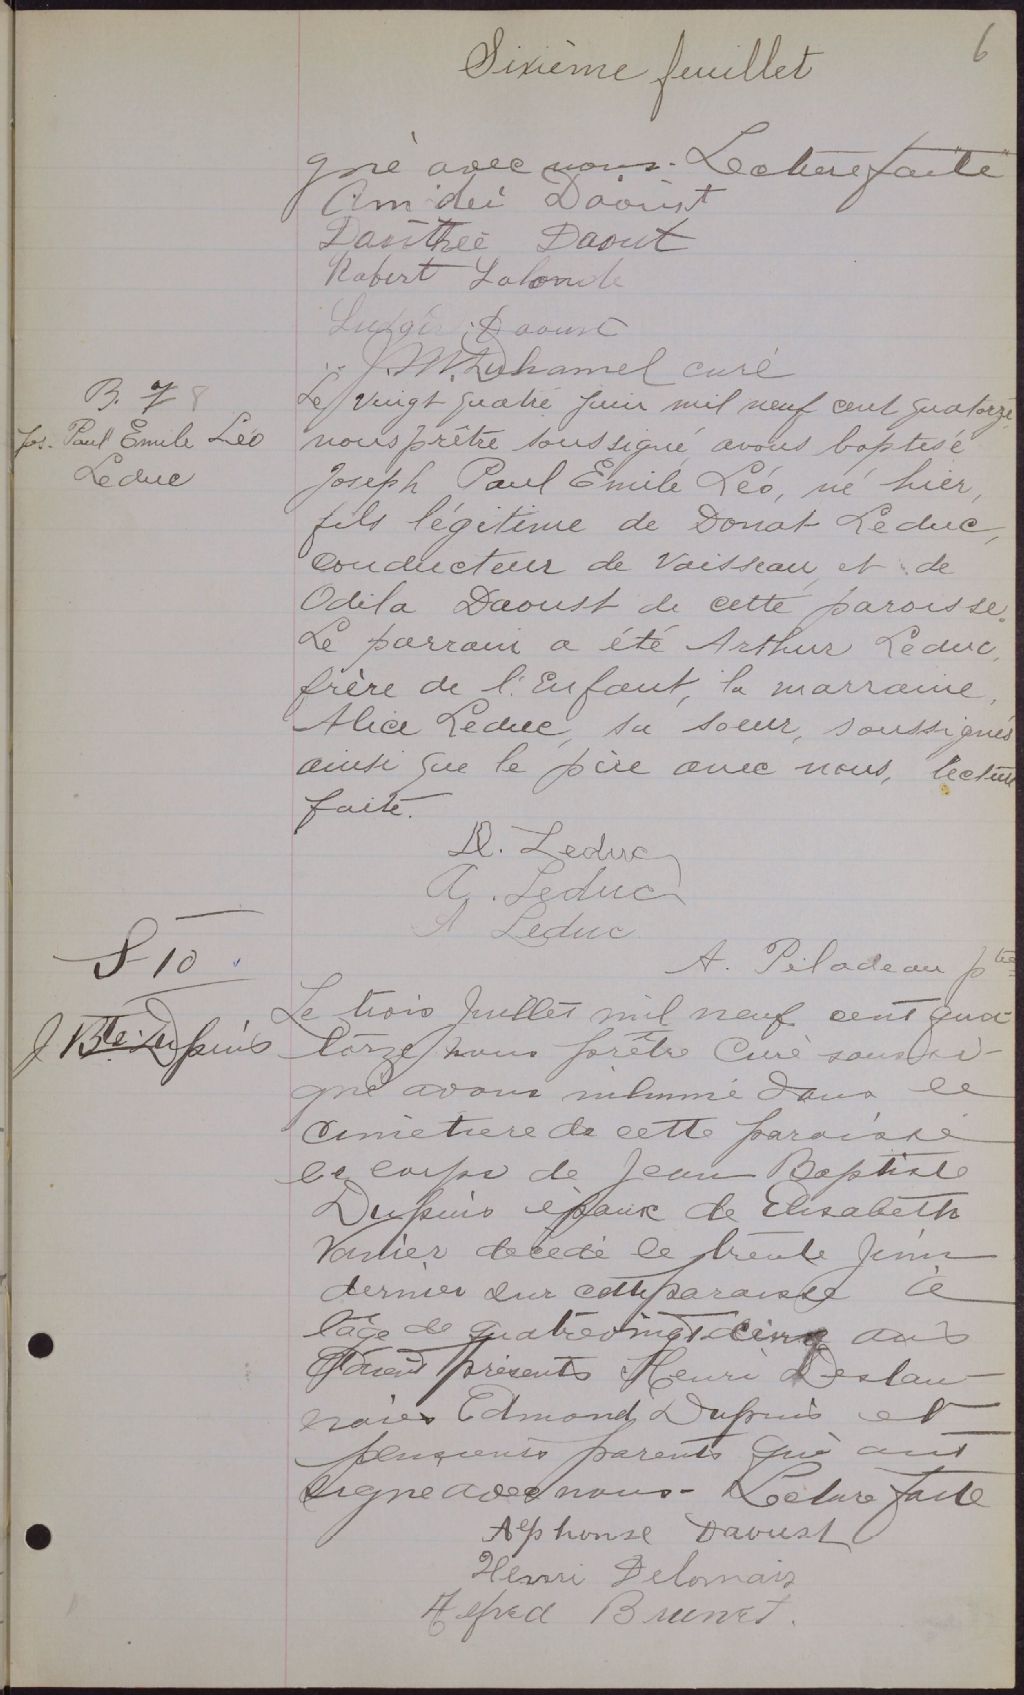 6
Sixième feuillet
gné avec nous - Lecture faite
Amédei Daoust
Dorithée Daout
Robert Lalonde
Daoust
J. M. Duhamel curé
B. 7 8
Jos. Paul Emile Léo
Leduc
Le vingt quatre juin mil neuf cent quatorze
nous prêtre soussigné avons baptisé
Joseph Paul Emile Léo, né hier,
fils légitime de Donat Leduc,
conducteur de vaisseau, et de
Odila Daoust de cette paroisse.
Le parrain a été Arthur Leduc,
frère de l'Enfant, la marraine,
Alice Leduc, sa soeur, soussignés
ainsi que le père avec nous, lecture
faite.
D. Leduc
A. Leduc
A Leduc
A. Piladeau ptre
S-10
J Bte Dupuis
Le trois Juillet mil neuf cent qua-
torze nous prêtre Curé soussi-
gné avons inhumé dans le
cimetiere de cette paroisse
le corps de Jean Baptiste
Dupuis époux de Elisabeth
Vanier decédé le trente Juin
dernier sur cette paroisse à
l'âge de quatrevingt cinq ans
Etaient présents Henri Deslau-
riers Edmond Dupuis et
plusieurs parents qui ont
signé avec nous - Lecture faite
Alphonse Daoust
Henri Delornais
Alfred Brunet.